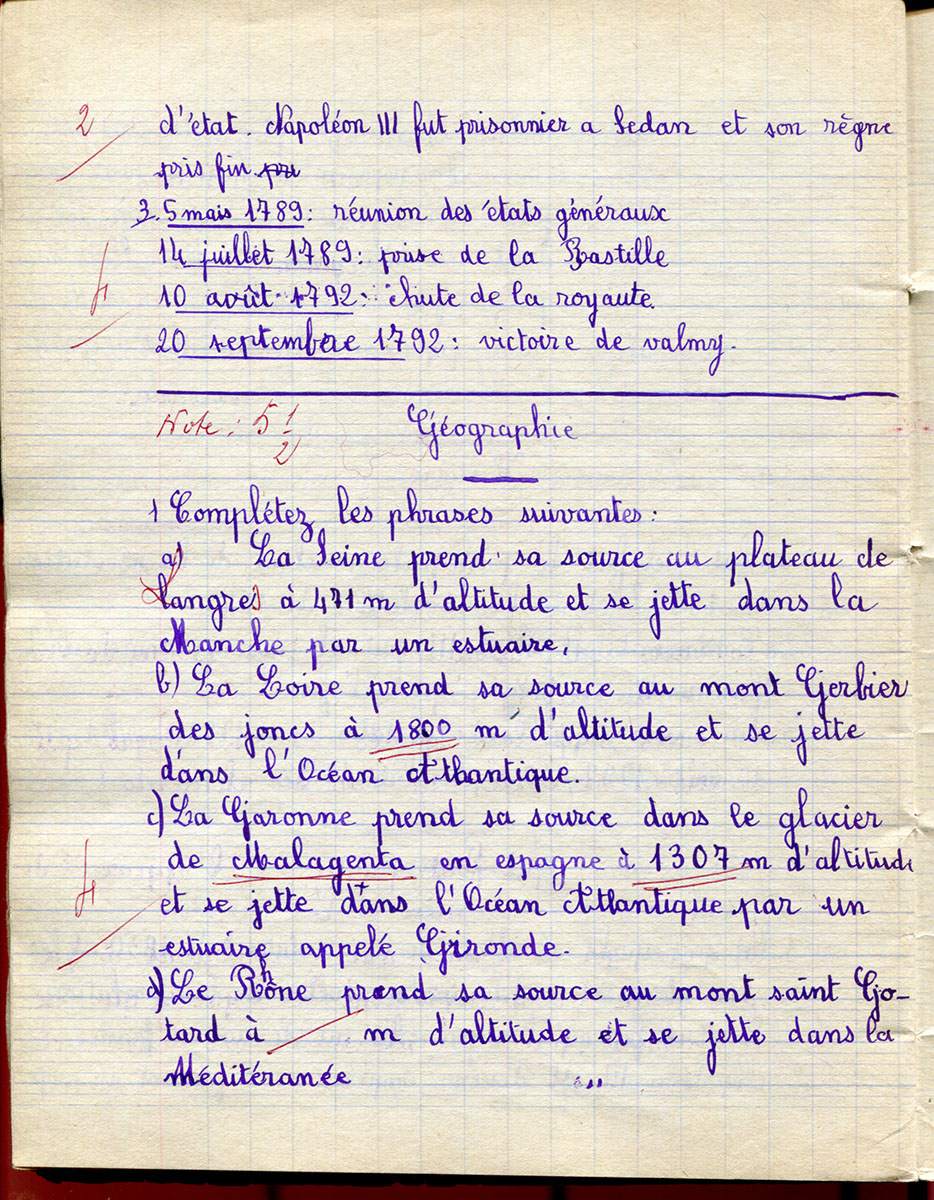 2 d'état. Napoléon III fut prisonnier a Sedan et son règne
pris fin. pri
3. 5 mais 1789: réunion des états généraux
14 juillet 1789: prise de la Bastille
10 août 1792: chute de la royaute.
20 septembre 1792: victoire de valmy.
Note: 5 1/2 Géographie
1 Complétez les phrases suivantes:
a) La Seine prend sa source au plateau de
Langres à 471 m d'altitude et se jette dans la
Manche par un estuaire,
b) La Loire prend sa source au mont Gerbier
des joncs à 1800 m d'altitude et se jette
dans l'Océan Atlantique.
c) La Garonne prend sa source dans le glacier
de Malagenta en espagne à 1307 m d'altitude
et se jette dans l'Océan Atlantique par un
estuaire appelé Gironde.
d) Le Rhône prend sa source au mont saint Go-
tard à m d'altitude et se jette dans la
Méditéranée